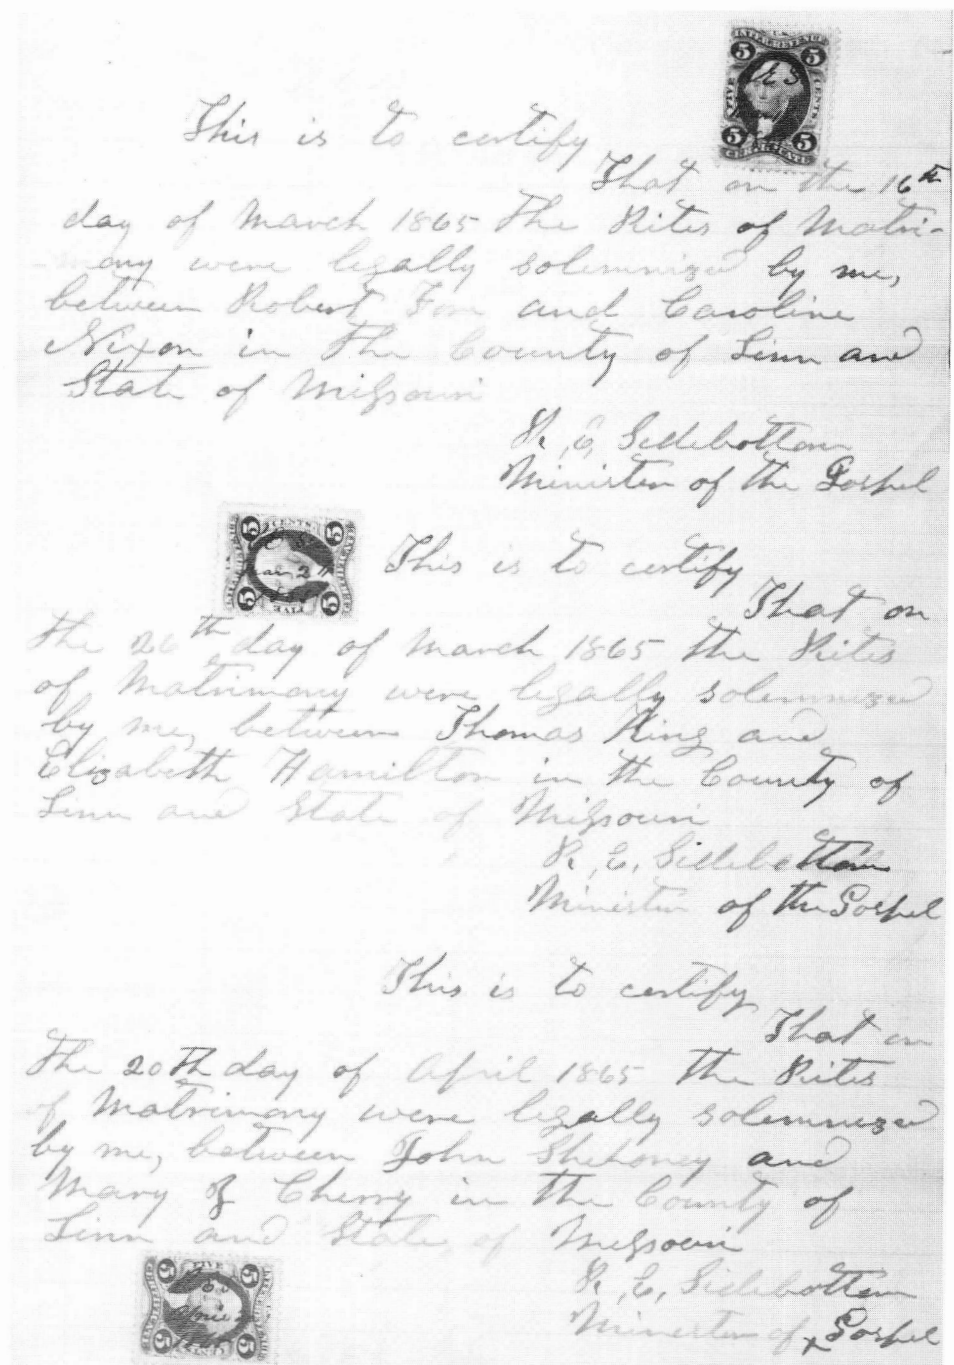 This is to certify
That on the 16th
day of March 1865 the Rites of Matri-
-mony were legally solemnized by me,
between Robert and Caroline
Nixon in the County of Linn and
State of Missouri
R. E. Sidebottom
Minister of the Gospel
This is to certify
That on
the 26th day of March 1865 the Rites
of Matrimony were legally solemnized
by me, between Thomas King and
Elizabeth Hamilton in the County of
Linn and State of Missouri
R. E. Sidebottom
Minister of the Gospel
This is to certify
That on
the 20th day of April 1865 the Rites
of Matrimony were legally solemnized
by me, between John Shehoney and
Mary Cherry in the County of
Linn and State, of Missouri
R. E. Sidebottom
Minister of Gospel
5 5
FIVE CENTS
5 5
CERTIFICATE
5 5
FIVE CENTS
5 5
5 5
FIVE
5 5